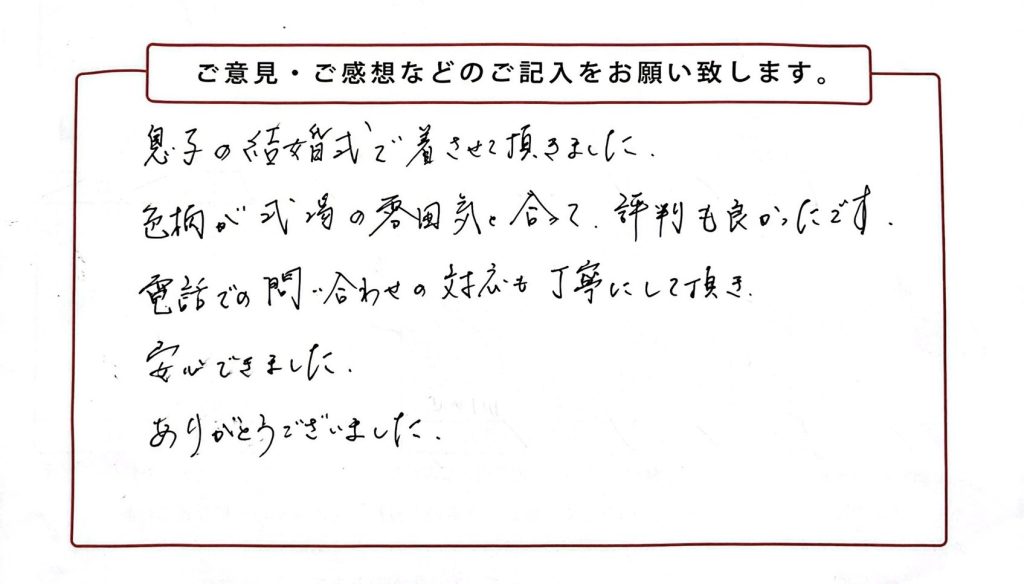 ご意見・ご感想などのご記入をお願い致します。
息子の結婚式で着させて頂きました.
色柄が式場の雰囲気と合って、評判も良かったです.
電話での問い合わせの対応も丁寧にして頂き、
安心できました.
ありがとうございました.